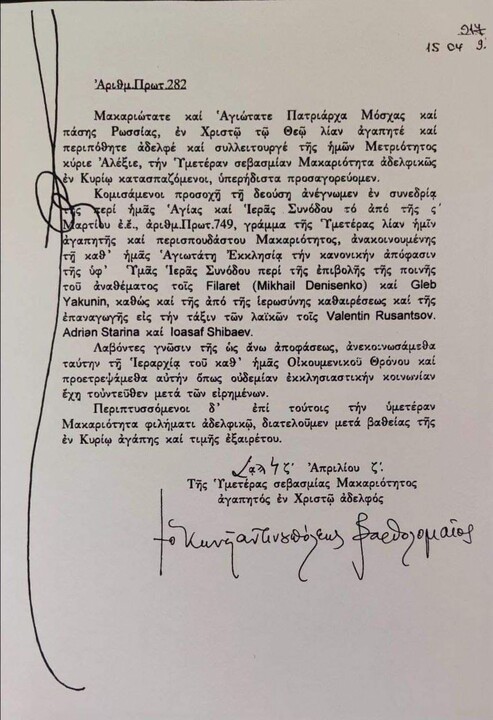 917
15 04 9.
Ἀριθμ.Πρωτ.282
Μακαριώτατε καί Ἁγιώτατε Πατριάρχα Μόσχας καί
πάσης Ρωσσίας, ἐν Χριστῷ τῷ Θεῷ λίαν ἀγαπητέ καί
περιπόθητε ἀδελφέ καί συλλειτουργέ τῆς ἡμῶν Μετριότητος
κύριε Ἀλέξιε, τήν Ὑμετέραν σεβασμίαν Μακαριότητα ἀδελφικῶς
ἐν Κυρίῳ κατασπαζόμενοι, ὑπερήδιστα προσαγορεύομεν.
Κομισάμενοι προσοχῇ τῇ δεούσῃ ἀνέγνωμεν ἐν συνεδρίᾳ
τῆς περί ἡμᾶς Ἁγίας καί Ἱερᾶς Συνόδου τό ἀπό τῆς ς΄
Μαρτίου ἐ.ἔ., ἀριθμ.Πρωτ.749, γράμμα τῆς Ὑμετέρας λίαν ἡμῖν
ἀγαπητῆς καί περισπουδάστου Μακαριότητος, ἀνακοινουμένης
τῇ καθ' ἡμᾶς Ἁγιωτάτῃ Ἐκκλησίᾳ τήν κανονικήν ἀπόφασιν
τῆς ὑφ' Ὑμᾶς Ἱερᾶς Συνόδου περί τῆς ἐπιβολῆς τῆς ποινῆς
τοῦ ἀναθέματος τοῖς Filaret (Mikhail Denisenko) καί Gleb
Yakunin, καθώς καί τῆς ἀπό τῆς ἱερωσύνης καθαιρέσεως καί τῆς
ἐπαναγωγῆς εἰς τήν τάξιν τῶν λαϊκῶν τοῖς Valentin Rusantsov.
Adrian Starina καί Ioasaf Shibaev.
Λαβόντες γνῶσιν τῆς ὡς ἄνω ἀποφάσεως, ἀνεκοινωσάμεθα
ταύτην τῇ Ἱεραρχίᾳ τοῦ καθ' ἡμᾶς Οἰκουμενικοῦ Θρόνου καί
προετρεψάμεθα αὐτήν ὅπως οὐδεμίαν ἐκκλησιαστικήν κοινωνίαν
ἔχῃ τοὐντεῦθεν μετά τῶν εἰρημένων.
Περιπτυσσόμενοι δ' ἐπί τούτοις τήν ὑμετέραν
Μακαριότητα φιλήματι ἀδελφικῷ, διατελοῦμεν μετά βαθείας τῆς
ἐν Κυρίῳ ἀγάπης καί τιμῆς ἐξαιρέτου.
ζ΄ Ἀπριλίου ζ΄.
Τῆς Ὑμετέρας σεβασμίας Μακαριότητος
ἀγαπητός ἐν Χριστῷ ἀδελφός
Βαρθολομαῖος